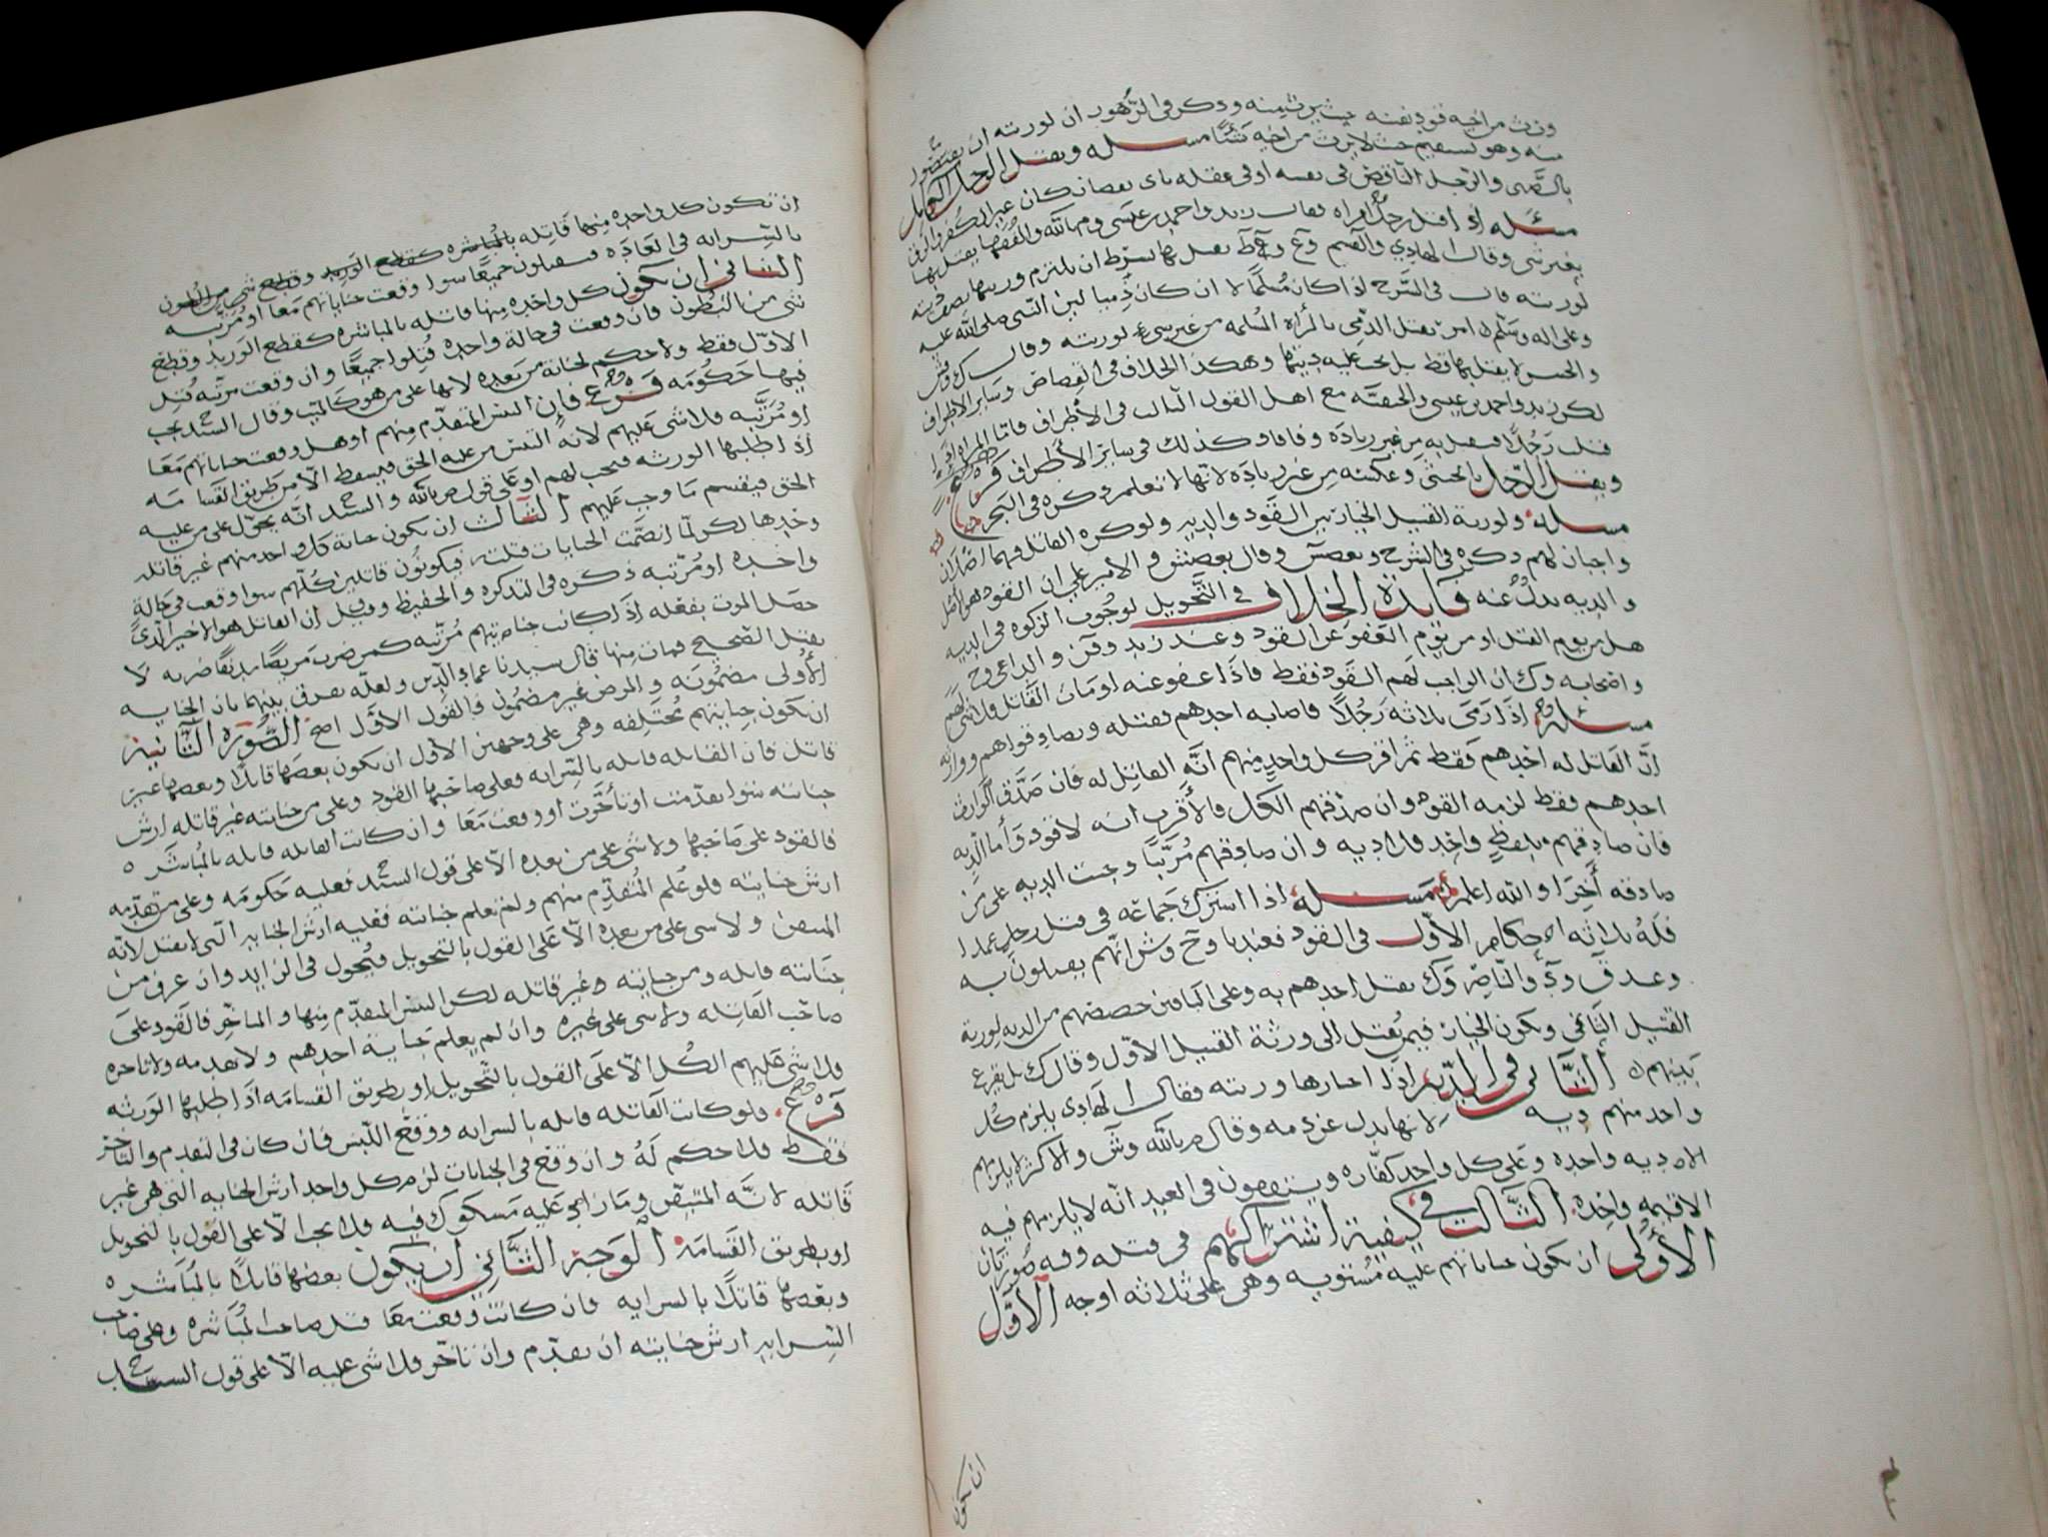 ورث من اخيه قود نفسه حيث يرث منه وذكر في الزهور ان لورثته ان يقتصوا
منه وهو مستقيم حيث لا يرث من اخيه شيئا مسله ويقتل الرجل الكامل
بالصبى والرجل الناقص في نفسه او في عقله باى نقصان كان غير الكفر والرق
مسئله اذا قتل رجل امراه فقال زيد واحمد بن عيسى و م بالله والفقها يقتل بها
بغير شى وقال الهادي والقسم يقتل بها بشرط ان يلتزم وريثها نصف ديته
لورثته قال في الشرح اذا كان مسلما لا ان كان ذميا لبن النبي صلى الله عليه
وعلى اله وسلم امر بقتل الذمي بالمراه المسلمه من غير شيء لورثته وقال
والحسن لا يقتل بها قط بل يجب عليه ديتها وهكذا الخلاف في القصاص وساير الاطراف
لكن زيد واحمد بن عيسى والحنفيه مع اهل القول الثالث في الاطراف فاما المراه اذا
قتلت رجلا فتقتل به من غير زياده وفاقا وكذلك في سائر الأطراف فرع
ويقتل الرجل بالخنثى وعكسه من غير زياده لانها لا تعلم ذكره في البحر
مسله ولورثة القتيل الخيار بين القود والديه ولو كره القاتل فهما اصلان
واجبان لهم ذكره في الشرح وقال بعضش و الامير علي ان القود هو الاصل
والديه بدل عنه فايدة الخلاف في التحويل لوجوب الزكوه في الديه
هل من يوم القتل او من يوم العفو عن القود وعند زيد و والداعي وح
واصحابه و ك ان الواجب لهم القود فقط فاذا عفو عنه او مات القاتل فلا شى لهم
مسئله اذا رمى ثلاثه رجلا فاصابه احدهم فقتله وتصادقوا هم ووارثه
ان القاتل له احدهم فقط ثم اقر كل واحد منهم انه القاتل له فان صدق الوارث
احدهم فقط لزمه القود وان صدقهم الكل فالأقرب انه لا قود وأما الديه
فان صادقهم بلفظ واحد فلا ديه وان صادقهم مرتبا وجبت الديه على من
صادقه أخرا والله اعلم مسله اذا اشترك جماعه في قتل رجل عمدا
فله ثلاثه احكام الاول في القود فعندنا وح وش انهم يقتلون به
وعند ق والناصر و ك يقتل احدهم به وعلى الباقين حصصهم من الديه لورثة
القتيل الثاني ويكون الخيار فيمن يقتل الى ورثة القتيل الاول وقال ك بل يقرع
بينهم الثاني في الديه اذا اختارها ورثته فقال الهادي يلزم كل
واحد منهم ديه لانها بدل عن دمه وقال م بالله وش والاكثر لا يلزمهم
الا ديه واحده وعلى كل واحد كفاره ويتفقون في العبد انه لا يلزمهم فيه
الا قيمه واحده الثالث في كيفية اشتراكهم في قتله وفيه صورتان
الأولى ان تكون جناياتهم عليه مستويه وهى على ثلاثه اوجه الاول
ان تكون
ان تكون كل واحده منها قاتله بالمباشره كقطع الوريد وقطع شى من البطون
بالسرايه في العاده فيقتلون جميعا سوا وقعت جناياتهم معا او مرتبه
الثاني ان تكون كل واحده منها قاتله بالمباشره كقطع الوريد وقطع
شى من البطون فان وقعت في حالة واحده قتلوا جميعا وان وقعت مرتبه قتل
الاول فقط ولا حكم لجناية من بعده لانها على من هو كالميت وقال السيد يجب
فيها حكومه فرع فان التبس المتقدم منهم او هل وقعت جناياتهم معا
او مرتبه فلا شى عليهم لانه التبس من عليه الحق فيسقط الا من طريق القسامه
اذا طلبها الورثه فتجب لهم او على قول م بالله والسيد انه يحول على من عليه
الحق فيقسم ما وجب عليهم الثالث ان تكون جناية كل واحد منهم غير قاتله
وحدها لكن لما انضمت الجنايات قتلت فيكونون قاتلين كلهم سوا وقعت في حالة
واحده او مرتبه ذكره في التذكره والحفيظ وقيل ان القاتل هو الاخير الذى
حصل الموت بفعله اذا كانت جنايتهم مرتبه كمن ضرب مريضا مدنفا ضربه لا
يقتل الصحيح فمات منها قال سيدنا عماد الدين ولعله يفرق بينهما بان الجنايه
الأولى مضمونه والمرض غير مضمون فالقول الاول اصح الصوره الثانيه
ان تكون جنايتهم مختلفه وهى على وجهين الاول ان تكون بعضها قاتلا وبعضها غير
قاتل فان القاتله قاتله بالسرايه فعلى صاحبها القود وعلى من جنايته غير قاتله ارش
جنايته سوا تقدمت او تأخرت او وقعت معا وان كانت القاتله قاتله بالمباشره
فالقود على صاحبها ولا شى على من بعده الا على قول السيد فعليه حكومه وعلى من تقدمه
ارش جنايته فلو علم المتقدم منهم ولم تعلم جنايته فعليه ارش الجنايه التى لا تقتل لانه
المتيقن ولا شى على من بعده الا على القول بالتحويل فيحول في الزايد وان عرف من
جنايته قاتله ومن جنايته غير قاتله لكن التبس المتقدم منها والمتاخر فالقود على
صاحب القاتله ولا شى على غيره وان لم يعلم جناية احدهم ولا تقدمه ولا تاخره
فلا شى عليهم الكل الا على القول بالتحويل او بطريق القسامه اذا طلبها الورثه
فرع فلو كانت القاتله قاتله بالسرايه ووقع اللبس فان كان في التقدم والتاخر
فقط فلا حكم له وان وقع في الجنايات لزم كل واحد ارش الجنايه التى هى غير
قاتله لانه المتيقن وما زاد عليه مشكوك فيه فلا يجب الا على القول بالتحويل
او بطريق القسامه الوجه الثاني ان يكون بعضها قاتلا بالمباشره
وبعضها قاتلا بالسرايه فان كانت وقعت معا قتل صاحب المباشره وعلى صاحب
السرايه ارش جنايته ان تقدم وان تأخر فلا شى عليه الا على قول السيد